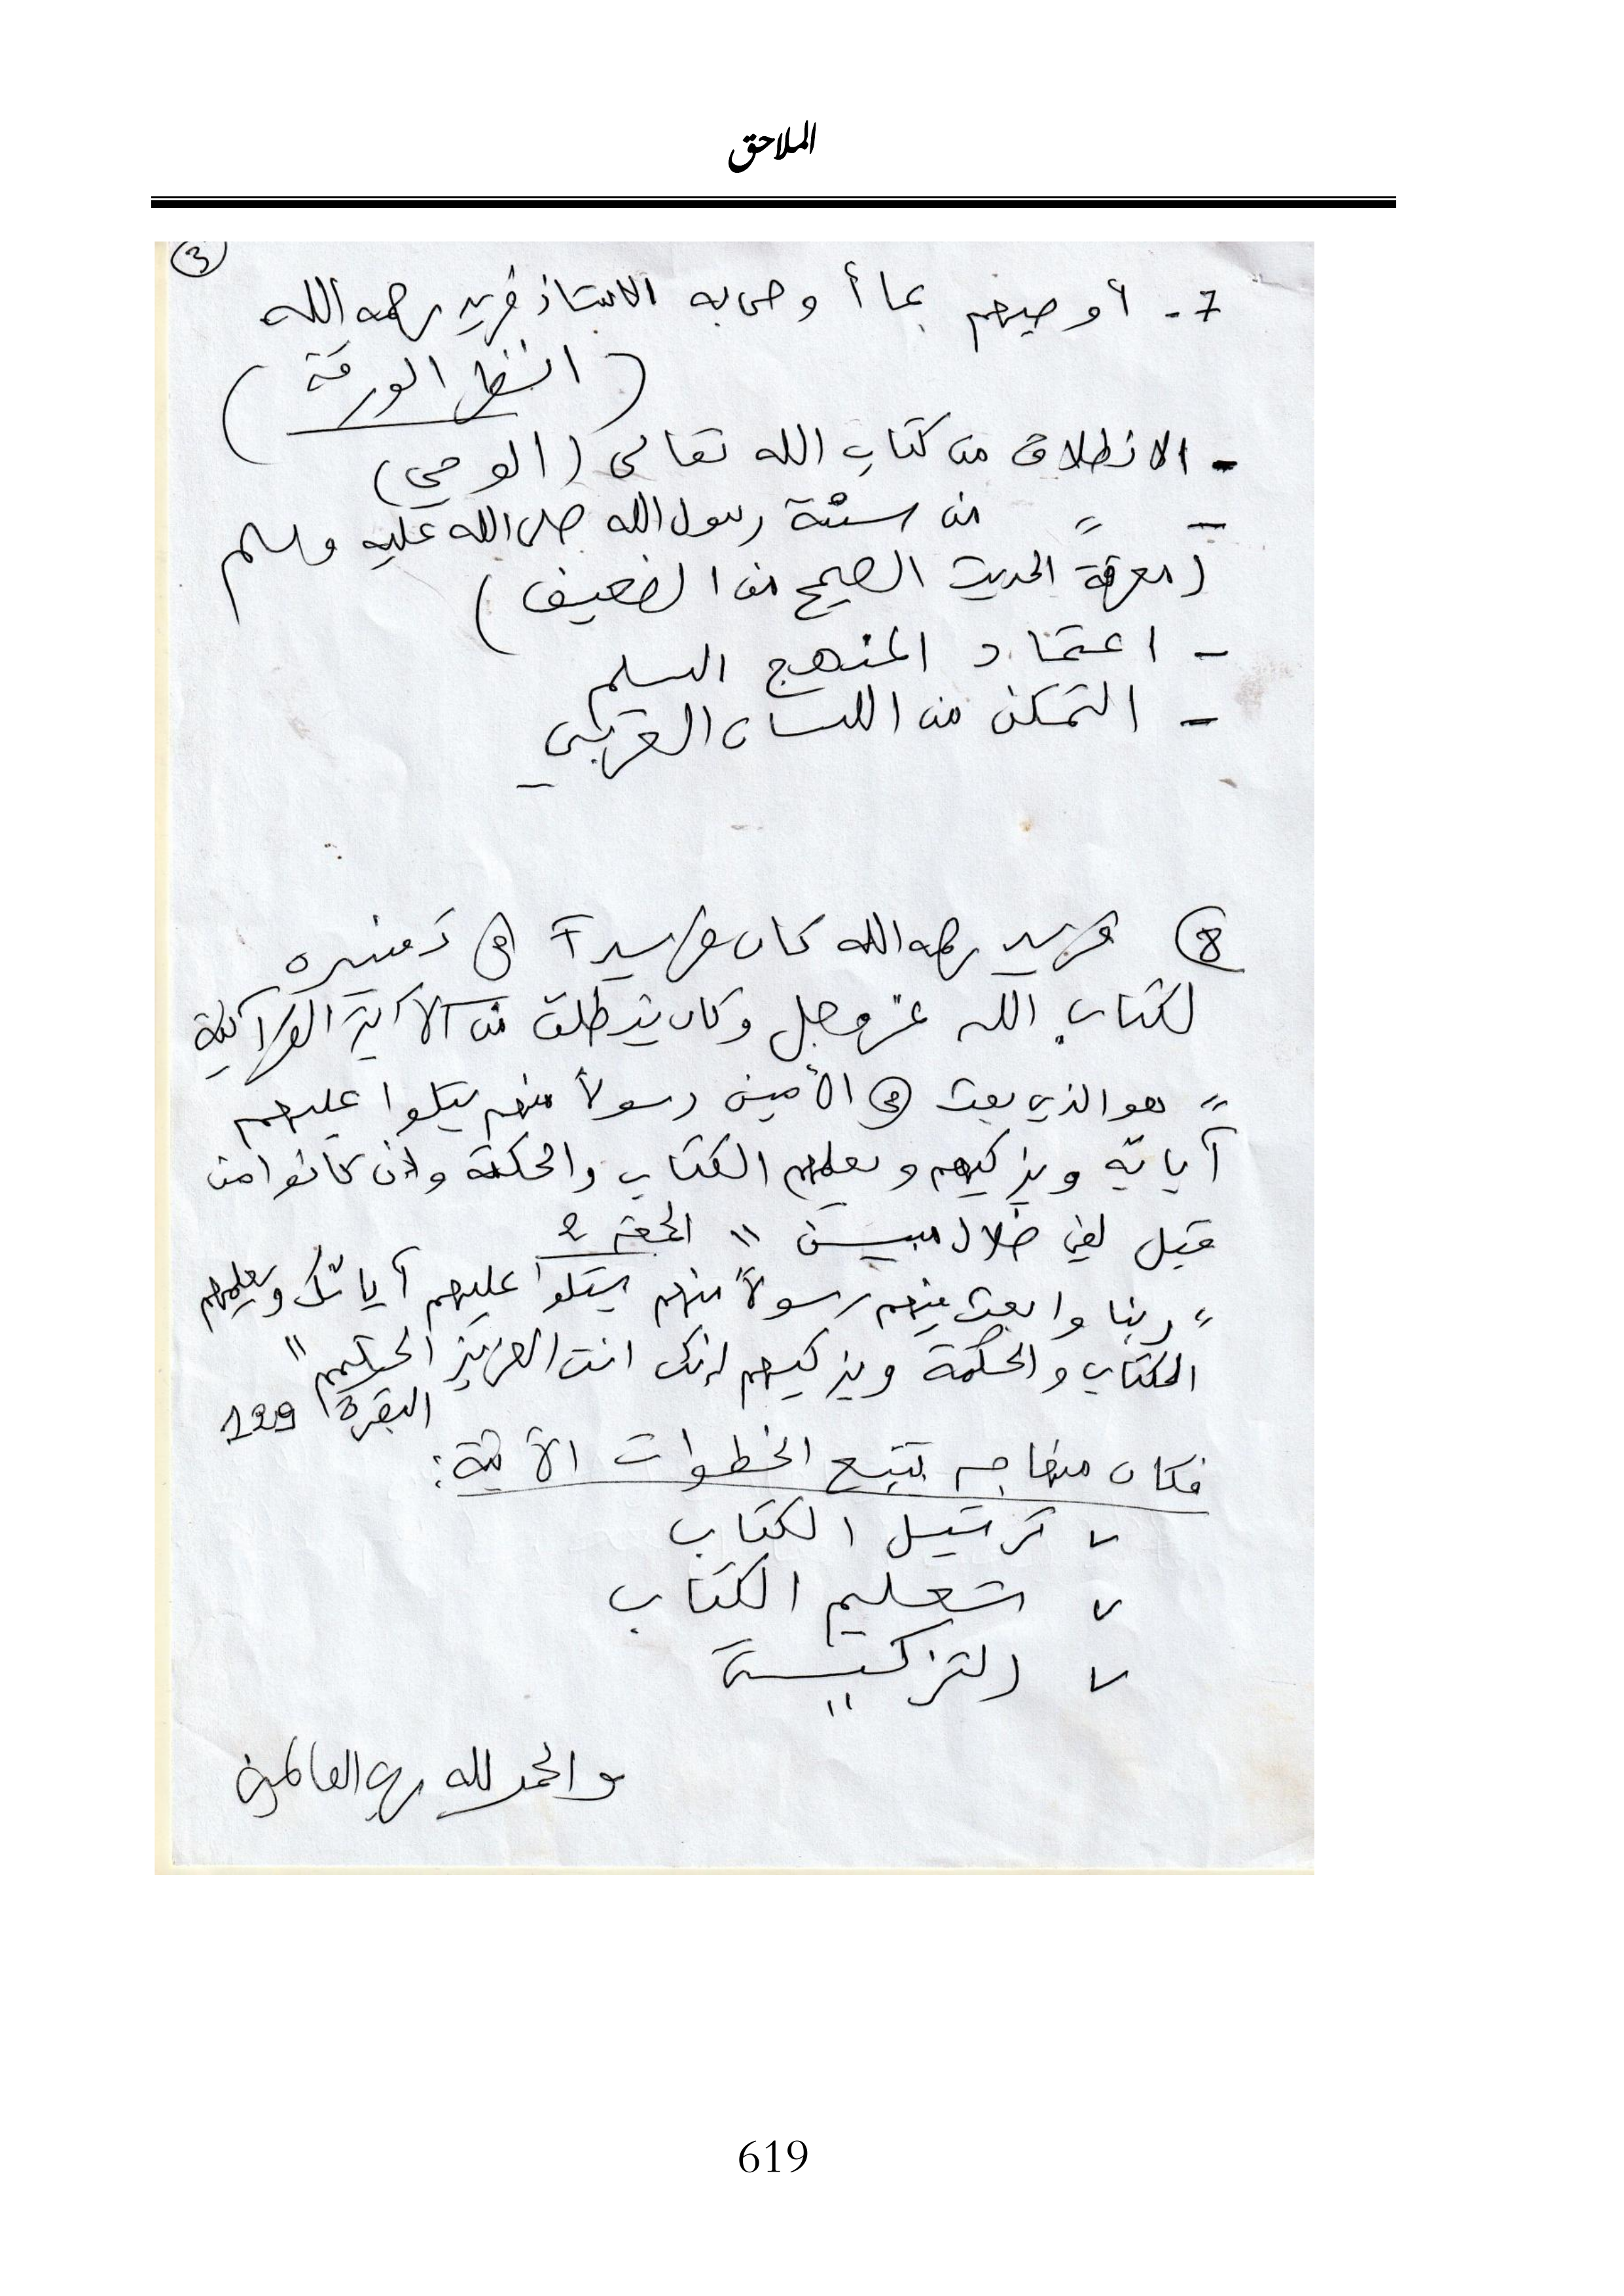 الملاحق
3
7- أوصيهم بما أوصى به الاستاذ فريد رحمه الله
(انظر الورقة)
- الانطلاق من كتاب الله تعالى (الوحي)
- " من سنة رسول الله صلى الله عليه وسلم
(معرفة الحديث الصحيح من الضعيف)
- اعتماد المنهج السليم
- التمكن من اللسان العربي
8 فريد رحمه الله كان فريدآ في تفسيره
لكتاب الله عز وجل وكان ينطلق من الآية القرآنية
" هو الذي بعث في الأميين رسولاً منهم يتلوا عليهم
آياته ويزكيهم ويعلمهم الكتاب والحكمة وإن كانوا من
قبل لفي ضلال مبين " الجمعة 2
" ربنا وابعث فيهم رسولاً منهم يتلوا عليهم آياتك ويعلمهم
الكتاب والحكمة ويزكيهم إنك انت العزيز الحكيم "
البقرة 129
فكان منهاجه يتبع الخطوات الآتية:
✓ ترتيل الكتاب
✓ تعليم الكتاب
✓ التزكية
والحمد لله رب العالمين
619